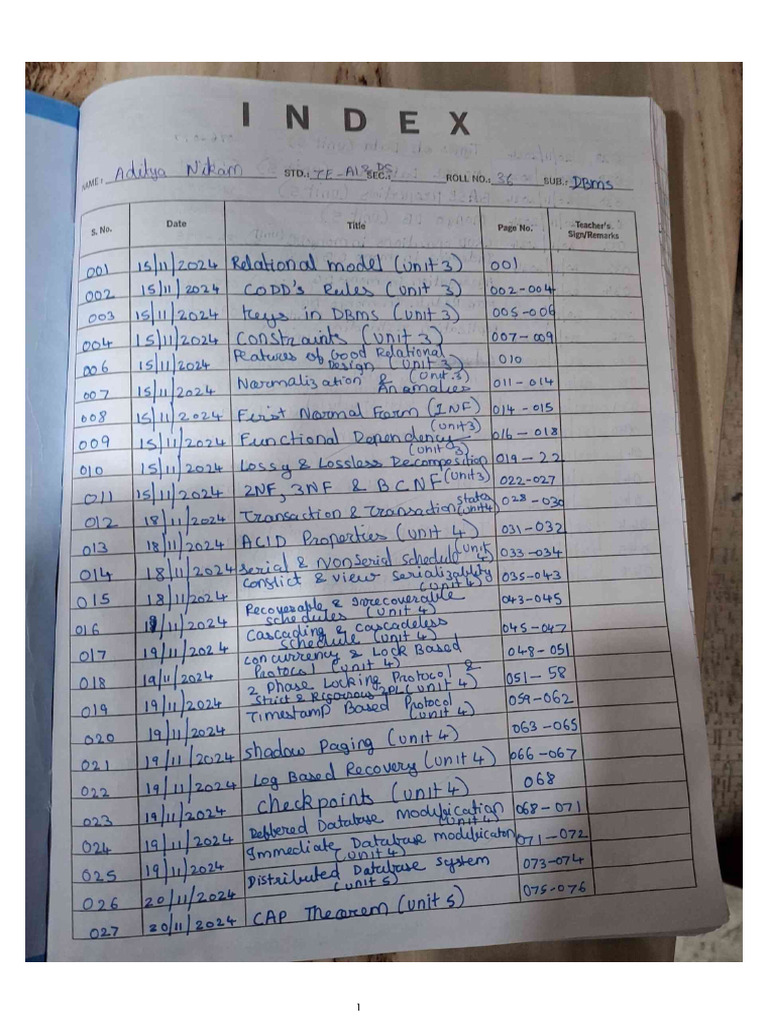 INDEX
NAME: Aditya Nikam STD.: TE-AI&DS SEC.: ROLL NO.: 36 SUB.: DBMS
S. No. Date Title Page No. Teacher's Sign/Remarks
001 15/11/2024 Relational model (Unit 3) 001
002 15/11/2024 CODD's Rules (Unit 3) 002-004
003 15/11/2024 Keys in DBMS (Unit 3) 005-006
004 15/11/2024 Constraints (Unit 3) 007-009
006 15/11/2024 Features of Good Relational Design (Unit 3) 010
007 15/11/2024 Normalization & Anomalies (Unit.3) 011-014
008 15/11/2024 First Normal Form (1NF) (Unit 3) 014-015
009 15/11/2024 Functional Dependency (Unit 3) 016-018
010 15/11/2024 Lossy & Lossless Decomposition 019-22
011 15/11/2024 2NF, 3NF & BCNF (Unit 3) 022-027
012 18/11/2024 Transaction & Transaction states (Unit 4) 028-030
013 18/11/2024 ACID Properties (Unit 4) 031-032
014 18/11/2024 Serial & NonSerial Schedule (Unit 4) 033-034
015 18/11/2024 Conflict & View Serializability (Unit 4) 035-043
016 18/11/2024 Recoverable & Irrecoverable schedules (Unit 4) 043-045
017 19/11/2024 Cascading & Cascadeless schedule (Unit 4) 045-047
018 19/11/2024 Concurrency & Lock Based Protocol (Unit 4) 048-051
019 19/11/2024 2 Phase Locking Protocol & Strict & Rigorous 2PL (Unit 4) 051-58
020 19/11/2024 Timestamp Based Protocol (Unit 4) 059-062
021 19/11/2024 Shadow Paging (Unit 4) 063-065
022 19/11/2024 Log Based Recovery (Unit 4) 066-067
023 19/11/2024 Checkpoints (Unit 4) 068
024 19/11/2024 Deffered Database modification (Unit 4) 068-071
025 19/11/2024 Immediate Database modificaton (Unit 4) 071-072
026 20/11/2024 Distributed Database System (Unit 5) 073-074
027 20/11/2024 CAP Theorem (Unit 5) 075-076
1